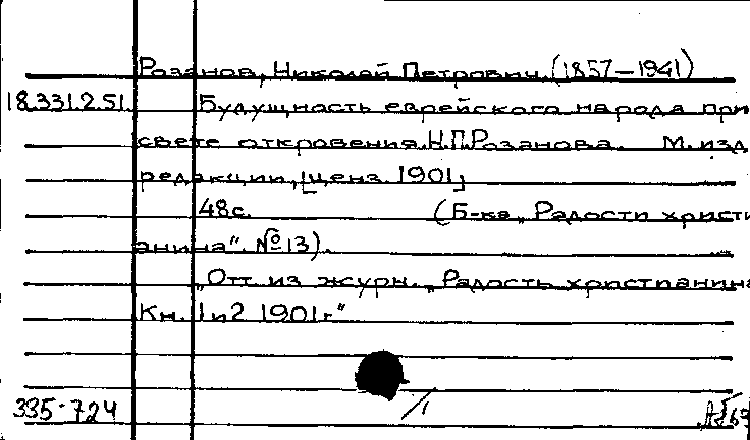 Розанов, Николай Петрович (1857-1941)
18.331.2.51. Будущность еврейского народа при
свете откровения. Н.П.Розанова. М. изд.
редакции, [ценз. 1901]
48с. (Б-ка „Радости христи
анина". № 13).
„Отт. из журн. „Радость христианина
Кн. 1 и 2 1901г"
335-724